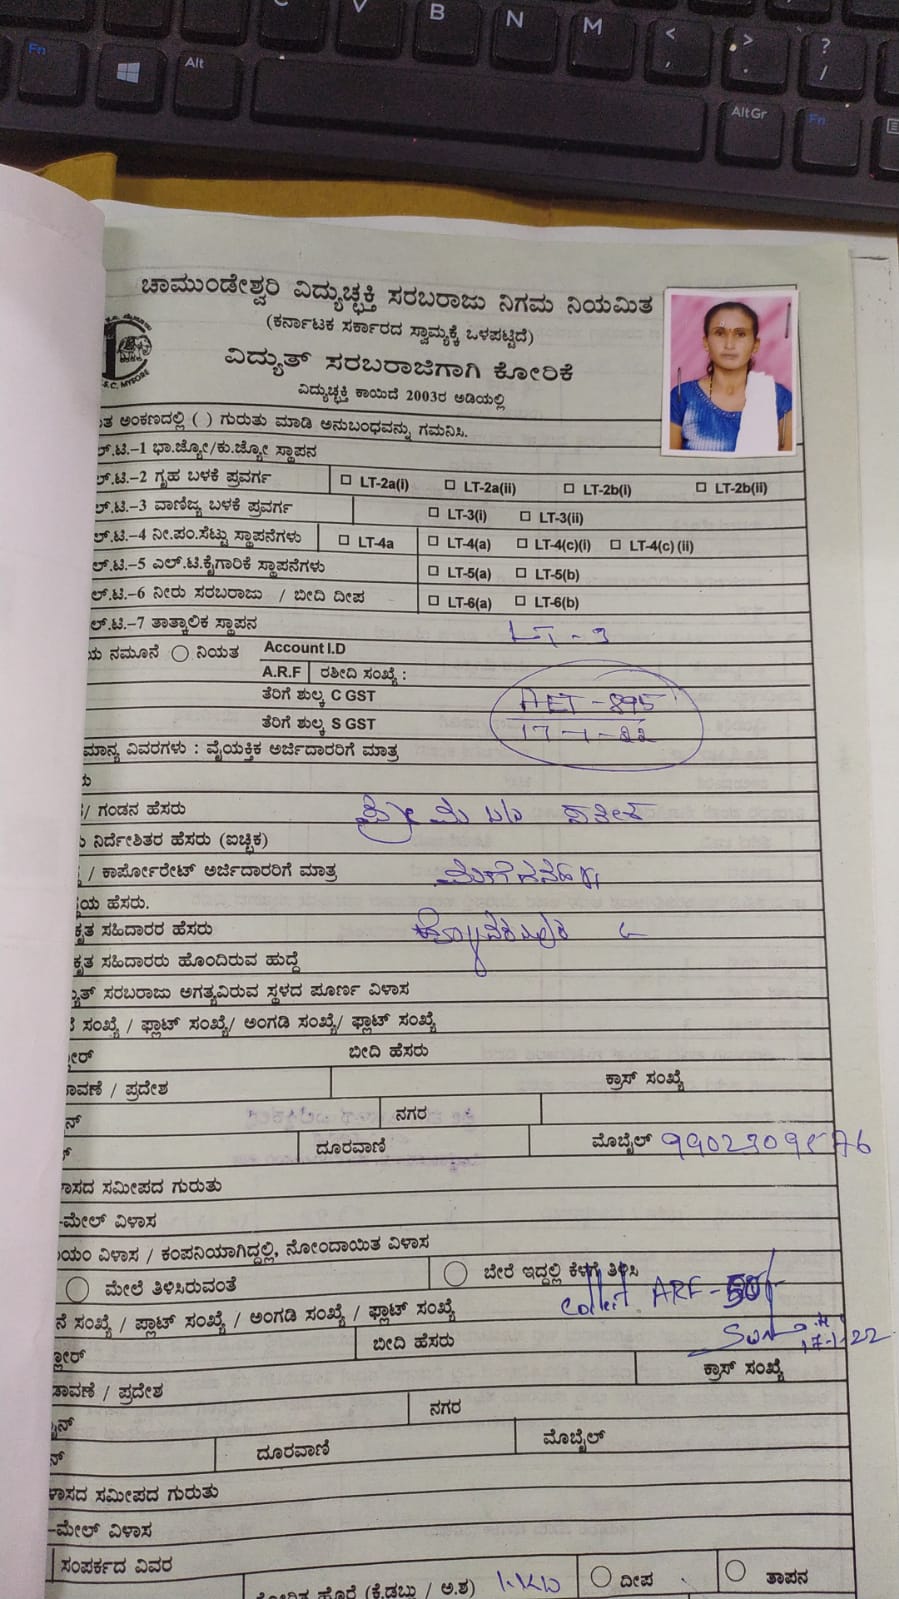 C
V
B
N
M
<
,
>
.
?
/
Fn
Alt
AltGr
Fn
ಚಾಮುಂಡೇಶ್ವರಿ ವಿದ್ಯುಚ್ಛಕ್ತಿ ಸರಬರಾಜು ನಿಗಮ ನಿಯಮಿತ
(ಕರ್ನಾಟಕ ಸರ್ಕಾರದ ಸ್ವಾಮ್ಯಕ್ಕೆ ಒಳಪಟ್ಟಿದೆ)
ವಿದ್ಯುತ್ ಸರಬರಾಜಿಗಾಗಿ ಕೋರಿಕೆ
ವಿದ್ಯುಚ್ಛಕ್ತಿ ಕಾಯಿದೆ 2003ರ ಅಡಿಯಲ್ಲಿ
ಅಂಕಣದಲ್ಲಿ ( ) ಗುರುತು ಮಾಡಿ ಅನುಬಂಧವನ್ನು ಗಮನಿಸಿ.
ಲ್.ಟಿ.-1 ಭಾ.ಜ್ಯೋ/ಕು.ಜ್ಯೋ ಸ್ಥಾಪನ
ಲ್.ಟಿ.-2 ಗೃಹ ಬಳಕೆ ಪ್ರವರ್ಗ LT-2a(i) LT-2a(ii) LT-2b(i) LT-2b(ii)
ಲ್.ಟಿ.-3 ವಾಣಿಜ್ಯ ಬಳಕೆ ಪ್ರವರ್ಗ LT-3(i) LT-3(ii)
ಲ್.ಟಿ.-4 ನೀ.ಪಂ.ಸೆಟ್ಟು ಸ್ಥಾಪನೆಗಳು LT-4a LT-4(a) LT-4(c)(i) LT-4(c) (ii)
ಲ್.ಟಿ.-5 ಎಲ್.ಟಿ.ಕೈಗಾರಿಕೆ ಸ್ಥಾಪನೆಗಳು LT-5(a) LT-5(b)
ಲ್.ಟಿ.-6 ನೀರು ಸರಬರಾಜು / ಬೀದಿ ದೀಪ LT-6(a) LT-6(b)
ಲ್.ಟಿ.-7 ತಾತ್ಕಾಲಿಕ ಸ್ಥಾಪನ LT - 3
ಯ ನಮೂನೆ ನಿಯತ Account I.D
A.R.F ರಶೀದಿ ಸಂಖ್ಯೆ :
ತೆರಿಗೆ ಶುಲ್ಕ C GST
ತೆರಿಗೆ ಶುಲ್ಕ S GST
ಮಾನ್ಯ ವಿವರಗಳು : ವೈಯಕ್ತಿಕ ಅರ್ಜಿದಾರರಿಗೆ ಮಾತ್ರ
/ ಗಂಡನ ಹೆಸರು
ನಿರ್ದೇಶಿತರ ಹೆಸರು (ಐಚ್ಛಿಕ)
/ ಕಾರ್ಪೋರೇಟ್ ಅರ್ಜಿದಾರರಿಗೆ ಮಾತ್ರ
ಯ ಹೆಸರು.
ಕೃತ ಸಹಿದಾರರ ಹೆಸರು
ಕೃತ ಸಹಿದಾರರು ಹೊಂದಿರುವ ಹುದ್ದೆ
ಸರಬರಾಜು ಅಗತ್ಯವಿರುವ ಸ್ಥಳದ ಪೂರ್ಣ ವಿಳಾಸ
ಸಂಖ್ಯೆ / ಫ್ಲಾಟ್ ಸಂಖ್ಯೆ/ ಅಂಗಡಿ ಸಂಖ್ಯೆ/ ಫ್ಲಾಟ್ ಸಂಖ್ಯೆ
ಬೀದಿ ಹೆಸರು
ಾವಣೆ / ಪ್ರದೇಶ ಕ್ರಾಸ್ ಸಂಖ್ಯೆ
ನಗರ
ದೂರವಾಣಿ ಮೊಬೈಲ್
ಾಸದ ಸಮೀಪದ ಗುರುತು
-ಮೇಲ್ ವಿಳಾಸ
ಯಂ ವಿಳಾಸ / ಕಂಪನಿಯಾಗಿದ್ದಲ್ಲಿ, ನೋಂದಾಯಿತ ವಿಳಾಸ
ಮೇಲೆ ತಿಳಿಸಿರುವಂತೆ ಬೇರೆ ಇದ್ದಲ್ಲಿ ಕೆಳಗೆ ತಿಳಿಸಿ
ನೆ ಸಂಖ್ಯೆ / ಪ್ಲಾಟ್ ಸಂಖ್ಯೆ / ಅಂಗಡಿ ಸಂಖ್ಯೆ / ಫ್ಲಾಟ್ ಸಂಖ್ಯೆ
ಬೀದಿ ಹೆಸರು
ಡಾವಣೆ / ಪ್ರದೇಶ ಕ್ರಾಸ್ ಸಂಖ್ಯೆ
ನಗರ
ದೂರವಾಣಿ ಮೊಬೈಲ್
ಳಾಸದ ಸಮೀಪದ ಗುರುತು
-ಮೇಲ್ ವಿಳಾಸ
ಸಂಪರ್ಕದ ವಿವರ
ಹೊರೆ (ಕೆ.ಡಬ್ಲು / ಅ.ಶ) ದೀಪ ತಾಪನ